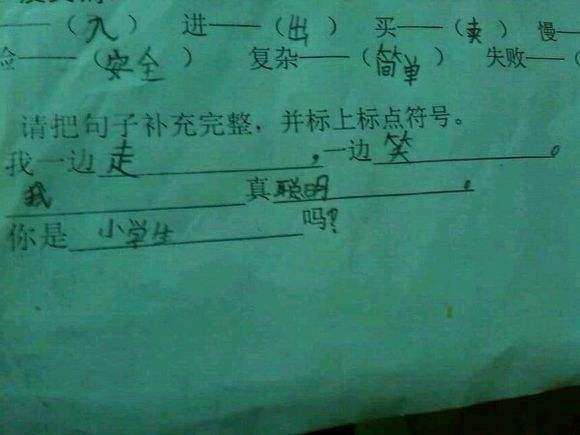 ——（入） 进——（出） 买——（卖） 慢—
——（安全） 复杂——（简单） 失败——（
请把句子补充完整，并标上标点符号。
我一边走，一边笑。
我真聪明。
你是小学生吗？